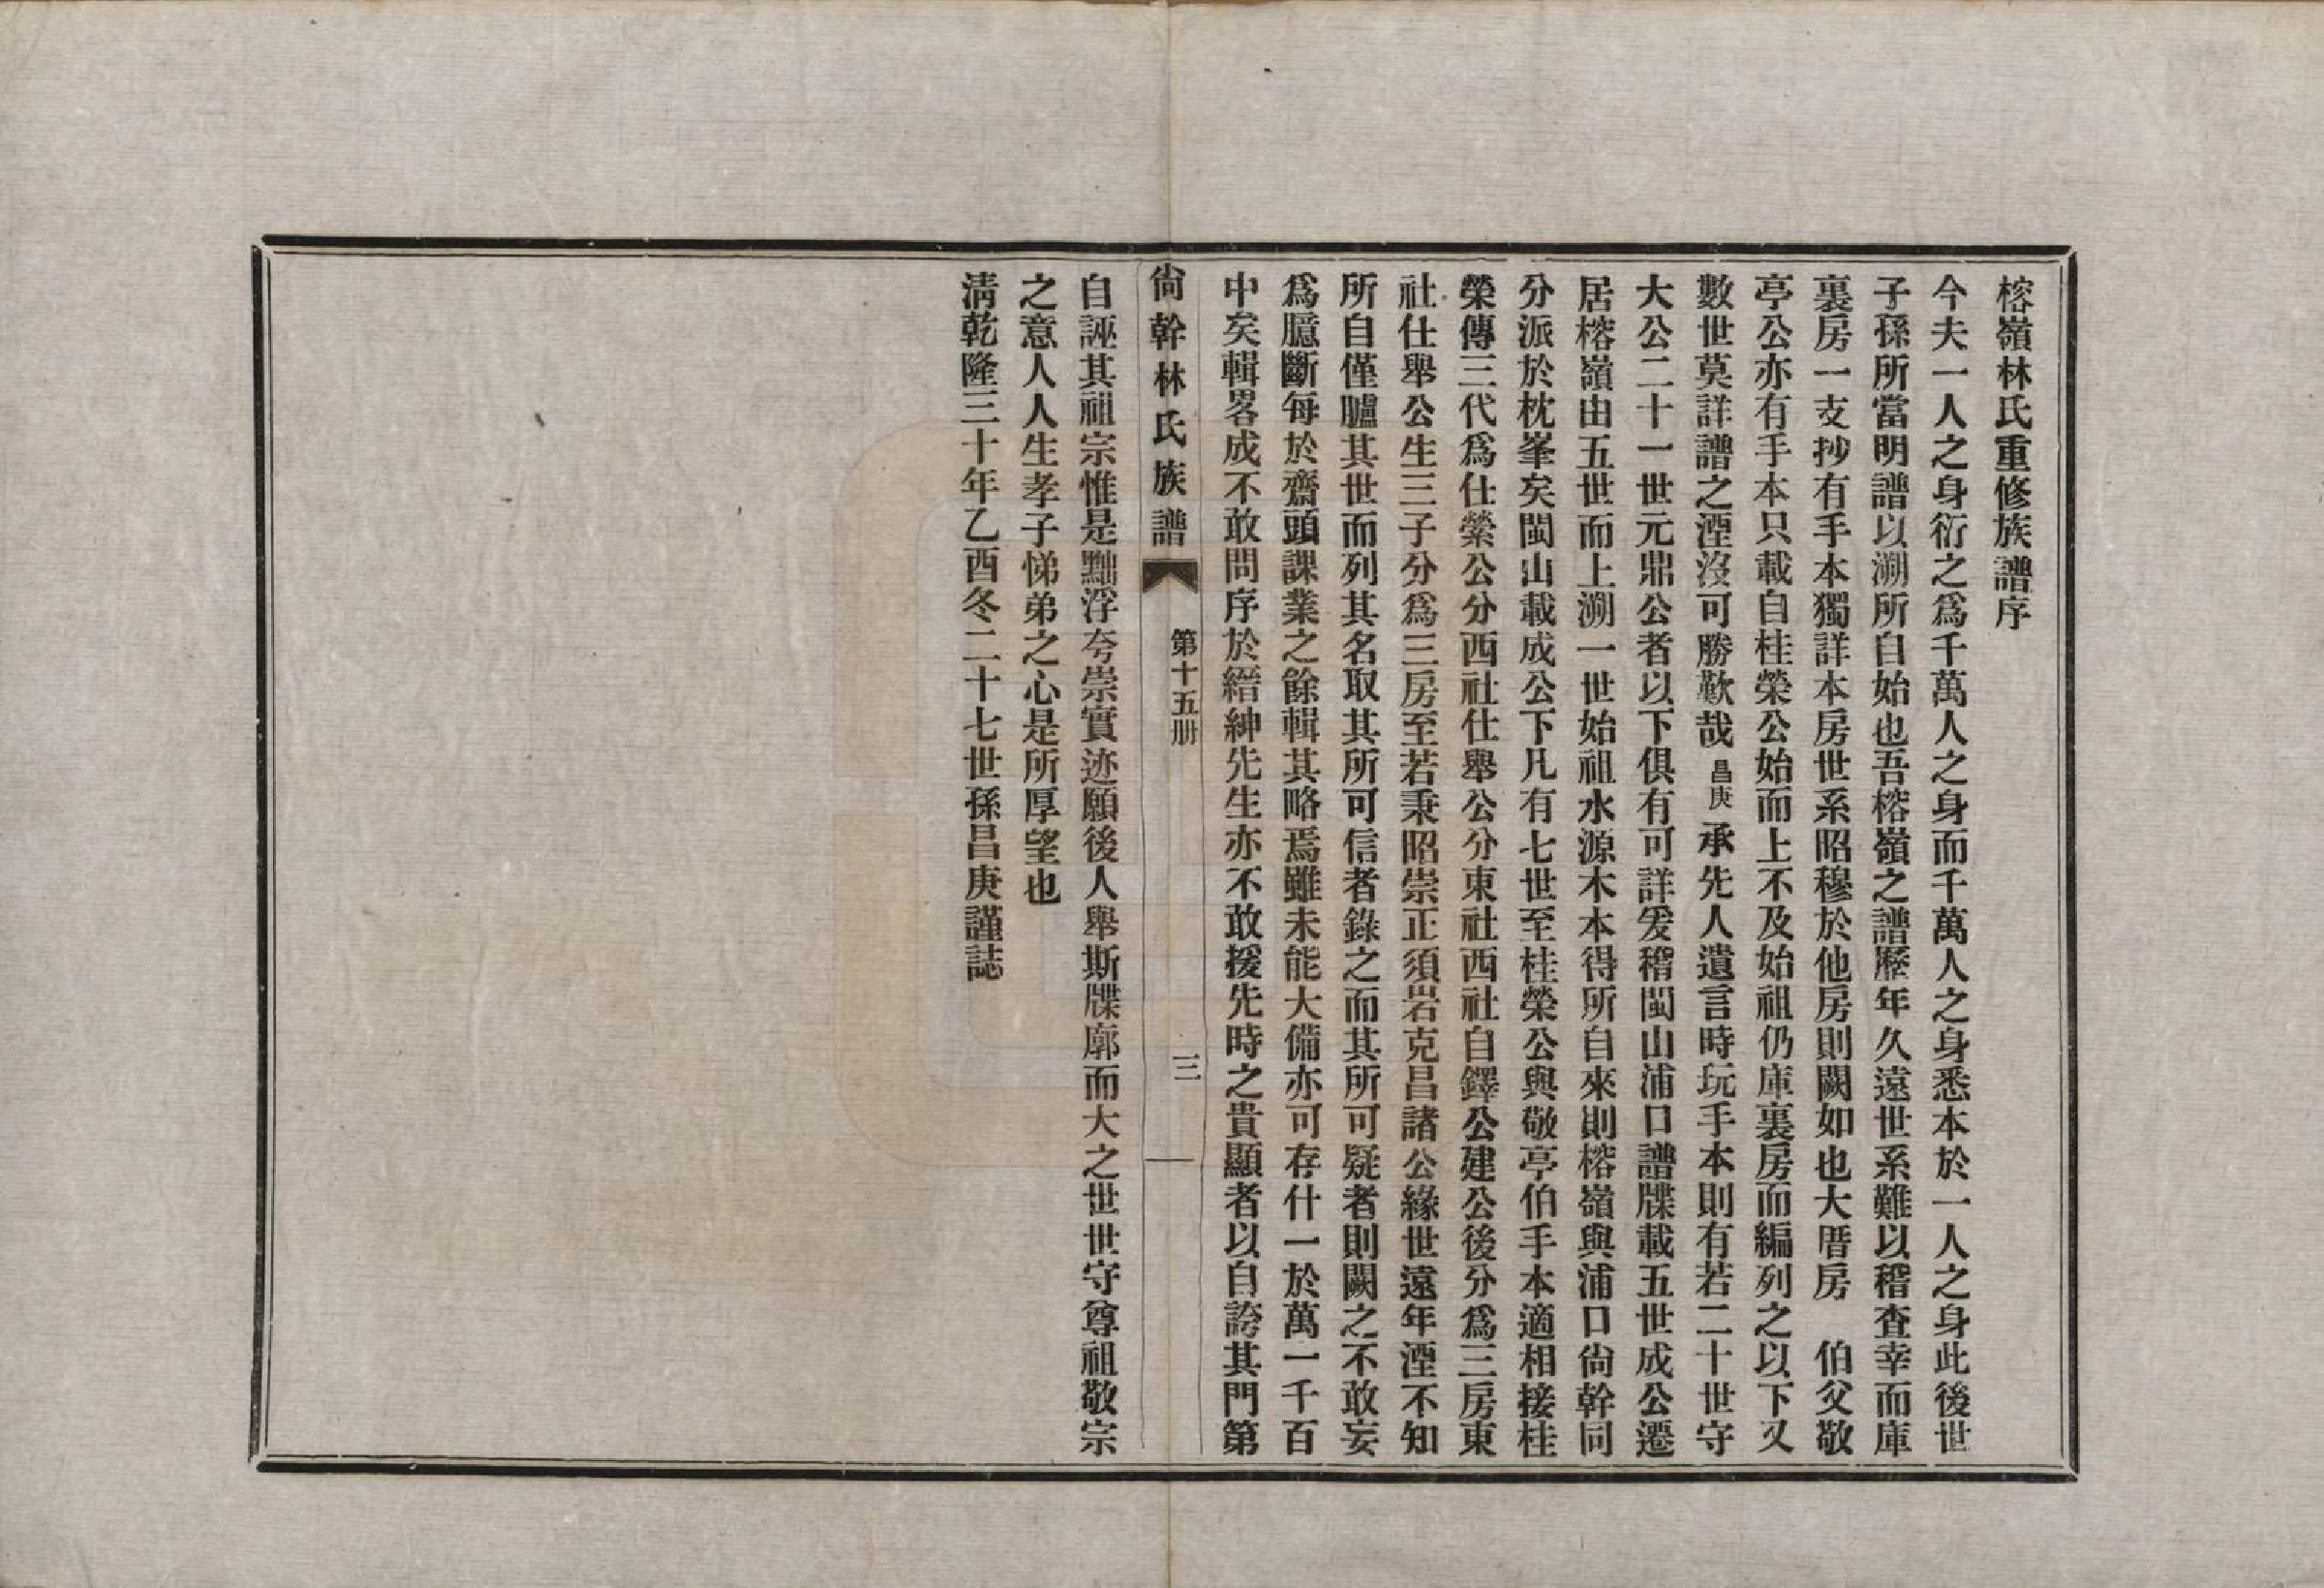 榕嶺林氏重修族譜序
今夫一人之身衍之爲千萬人之身而千萬人之身悉本於一人之身此後世
子孫所當明譜以溯所自始也吾榕嶺之譜歷年久遠世系難以稽查幸而庫
裏房一支抄有手本獨詳本房世系昭穆於他房則闕如也大厝房　伯父敬
亭公亦有手本只載自桂榮公始而上不及始祖仍庫裏房而編列之以下又
數世莫詳譜之湮沒可勝歎哉昌庚承先人遺言時玩手本則有若二十世守
大公二十一世元鼎公者以下俱有可詳爰稽閩山浦口譜牒載五世成公遷
居榕嶺由五世而上溯一世始祖水源木本得所自來則榕嶺與浦口尙幹同
分派於枕峯矣閩山載成公下凡有七世至桂榮公與敬亭伯手本適相接桂
榮傳三代爲仕縈公分西社仕舉公分東社西社自鐸公建公後分爲三房東
社仕舉公生三子分爲三房至若秉昭崇正須岩克昌諸公緣世遠年湮不知
所自僅臚其世而列其名取其所可信者錄之而其所可疑者則闕之不敢妄
爲臆斷每於齋頭課業之餘輯其略焉雖未能大備亦可存什一於萬一千百
中矣輯畧成不敢問序於縉紳先生亦不敢援先時之貴顯者以自誇其門第
尙幹林氏族譜　第十五册　三
自誣其祖宗惟是黜浮夸崇實迹願後人舉斯牒廓而大之世世守尊祖敬宗
之意人人生孝子悌弟之心是所厚望也
淸乾隆三十年乙酉冬二十七世孫昌庚謹誌